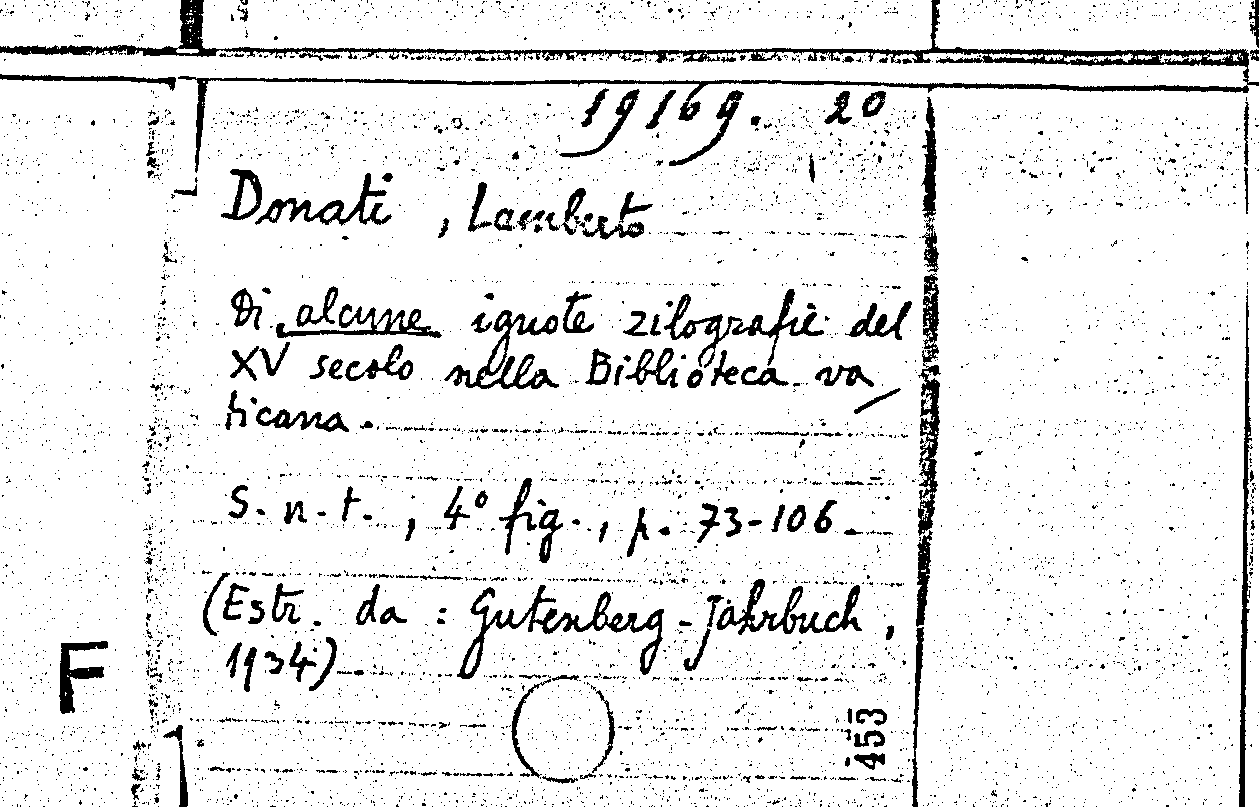 19169. 20
Donati, Lamberto
Di alcune ignote zilografie del
XV secolo nella Biblioteca va
ticana.
S. n. t., 4° fig., p. 73-106.
(Estr. da: Gutenberg-Jahrbuch,
1934).
F
453